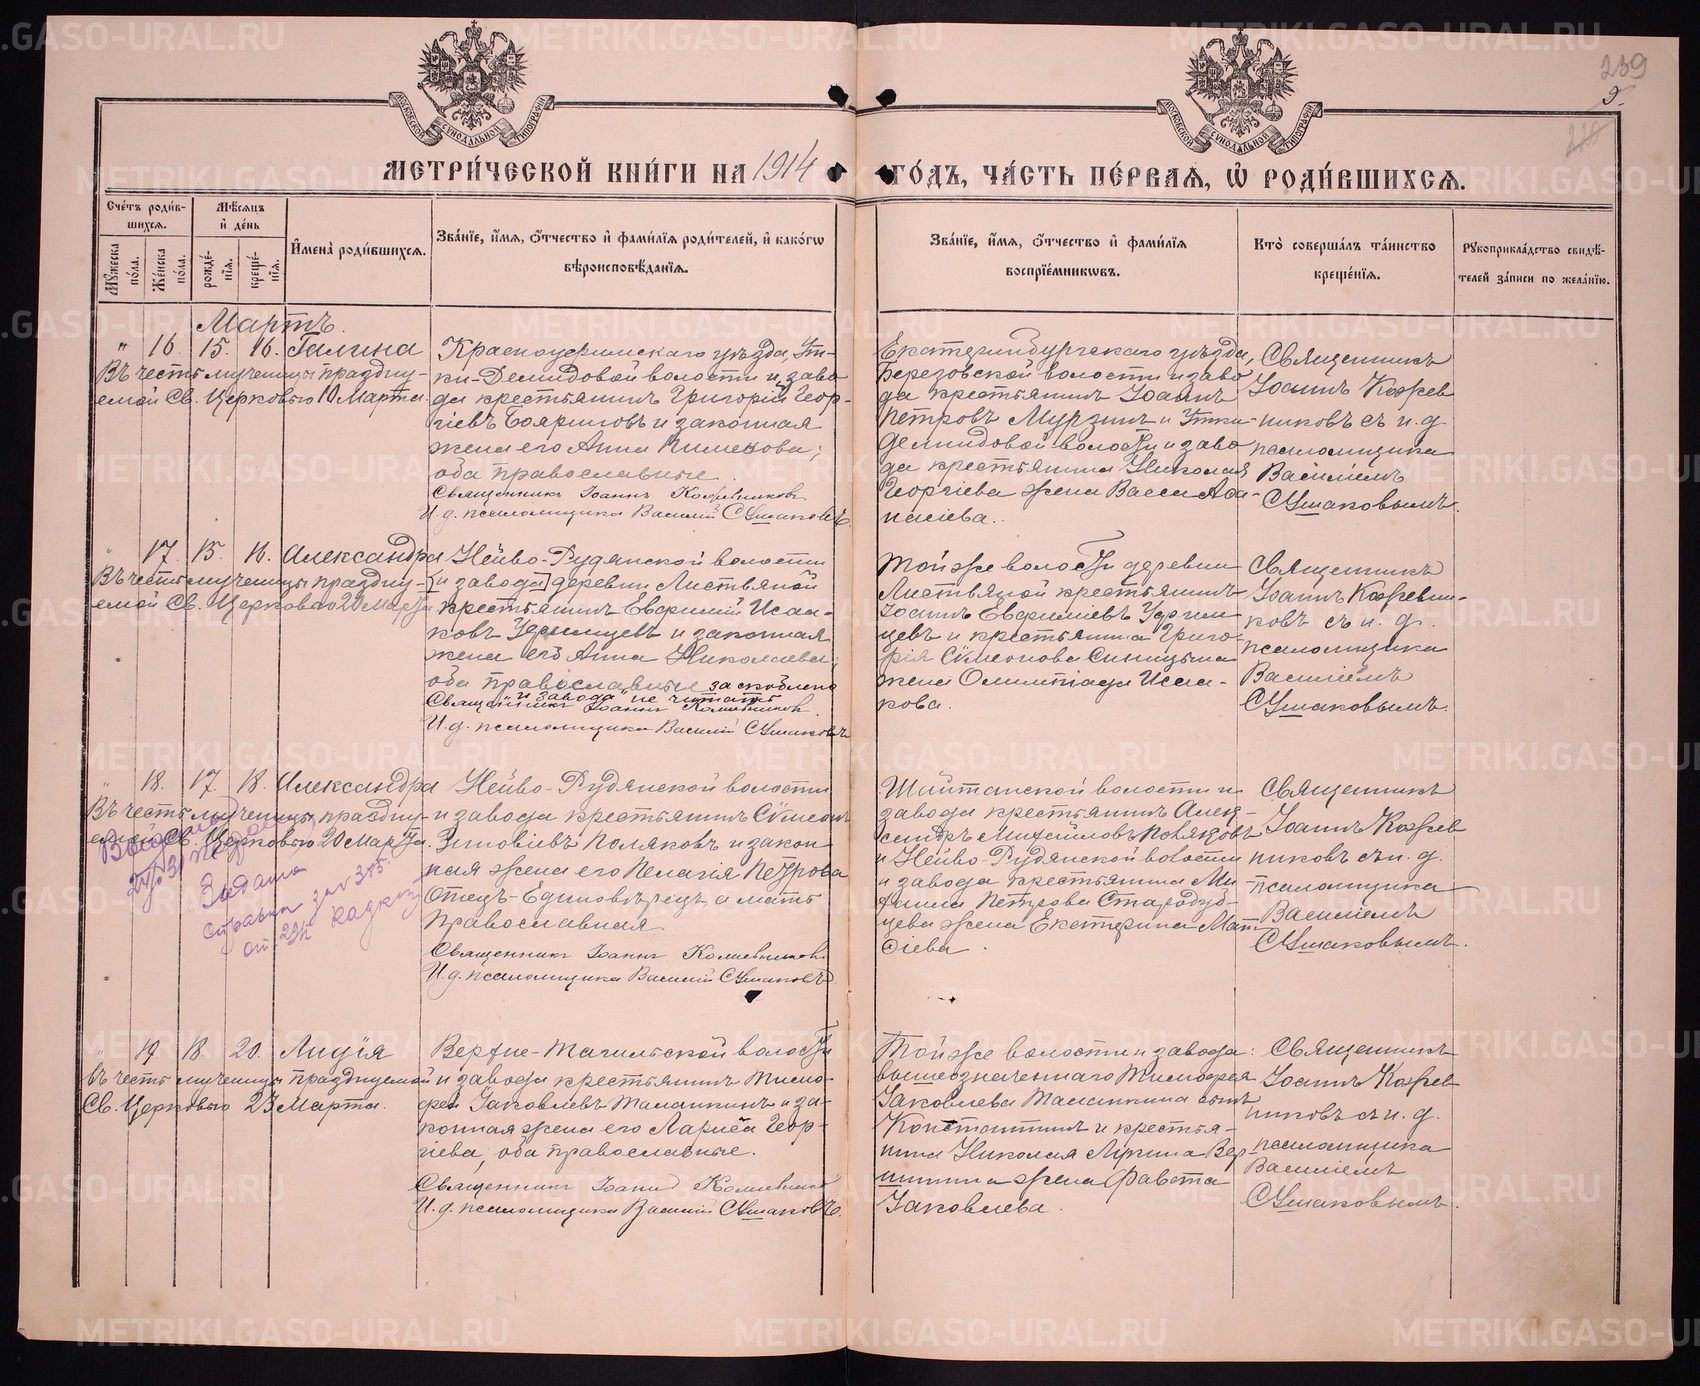 239
9.
МЕТРИ́ЧЕСКОЙ КНИ́ГИ НА 1914 ГО́ДЪ, ЧА́СТЬ ПЕ́РВАѦ, Ѡ РОДИ́ВШИХСѦ.
Сче́тъ роди́вшихсѧ.
Мꙋ́жеска по́ла.
Же́нска по́ла.
Мѣ́сѧцъ и҆ де́нь
рожде́нїѧ.
креще́нїѧ.
И҆мена̀ роди́вшихсѧ.
Зва́нїе, и҆́мѧ, ѻ҆́тчество и҆ фами́лїѧ роди́телей, и҆ како́гѡ вѣроисповѣ́данїѧ.
Зва́нїе, и҆́мѧ, ѻ҆́тчество и҆ фами́лїѧ воспрїе́мникѡвъ.
Кто̀ соверша́лъ та́инство креще́нїѧ.
Рꙋкоприкла́дство свидѣ́телей за́писи по жела́нїю.
Мартъ.
" 16. 15. 16. Галина
Въ честь мученицы праздну-
емой Св. Церковью 10 Марта.
Красноуфимскаго уѣзда, Ут-
ки-Демидовой волости и заво
да крестьянинъ Григорій Геор-
гіевъ Бояриновъ и законная
жена его Анна Пименова;
оба православные.
Священникъ Іоаннъ Кожевниковъ
И. д. псаломщика Василій Сушаковъ.
Екатеринбургскаго уѣзда,
Березовской волости и заво
да крестьянинъ Іоаннъ
Петровъ Мурзинъ и Утки-
Демидовой волости и заво
да крестьянина Николая
Георгіева жена Васса Афа-
насіева.
Священникъ
Іоаннъ Кожев
никовъ съ и. д.
псаломщика
Василіемъ
Сушаковымъ.
" 17. 15. 16. Александра
Въ честь мученицы праздну-
емой Св. Церковью 20 Марта
Нейво-Рудянской волости
[и завода] деревни Листвяной
крестьянинъ Евфимій Исаа-
ковъ и законная
жена его Анна Николаева;
оба православные заскоблено
"и завода" не читать
Священникъ Іоаннъ Кожевниковъ.
И. д. псаломщика Василій Сушаковъ
Той же волости деревни
Листвяной крестьянинъ
Іоаннъ Евфиміевъ
и крестьянина Григо-
рія Сѵмеонова Синицына
жена Олимпіада Исаа-
кова.
Священникъ
Іоаннъ Кожевни-
ковъ съ и. д.
псаломщика
Василіемъ
Сушаковымъ.
" 18. 17. 18. Александра
Въ честь мученицы праздну-
емой Св. Церковью 20 Марта.
Задана
справка за № 385
от
Нейво-Рудянской волости
и завода крестьянинъ Сѵмеонъ
Зиновіевъ Поляковъ и закон
ная жена его Пелагія Петрова
Отецъ-Единовѣрецъ а мать
Православная.
Священникъ Іоаннъ Кожевниковъ.
И. д. псаломщика Василій Сушаковъ
Шайтанской волости и
завода крестьянинъ Алек-
сандръ Михайловъ
и Нейво-Рудянской волости
и завода крестьянина Ми-
хаила Петрова Стародуб-
цева жена Екатерина Мат-
ѳіева.
Священникъ
Іоаннъ Кожев
никовъ съ и. д.
псаломщика
Василіемъ
Сушаковымъ.
" 19. 18. 20. Лидія
Въ честь мученицы празднуемой
Св. Церковью 23 Марта.
Верхне-Тагильской волости
и завода крестьянинъ Тимо-
фей Іаковлевъ Таланкинъ и за-
конная жена его Лариса Геор-
гіева, оба православные.
Священникъ Іоаннъ Кожевниковъ
И. д. псаломщика Василій Сушаковъ.
Той же волости и завода:
вышеозначеннаго Тимофея
Іаковлева Таланкина сынъ
Константинъ и крестья-
нина Николая
жена
Іаковлева.
Священникъ
Іоаннъ Кожев
никовъ съ и. д.
псаломщика
Василіемъ
Сушаковымъ.
METRIKI.GASO-URAL.RU